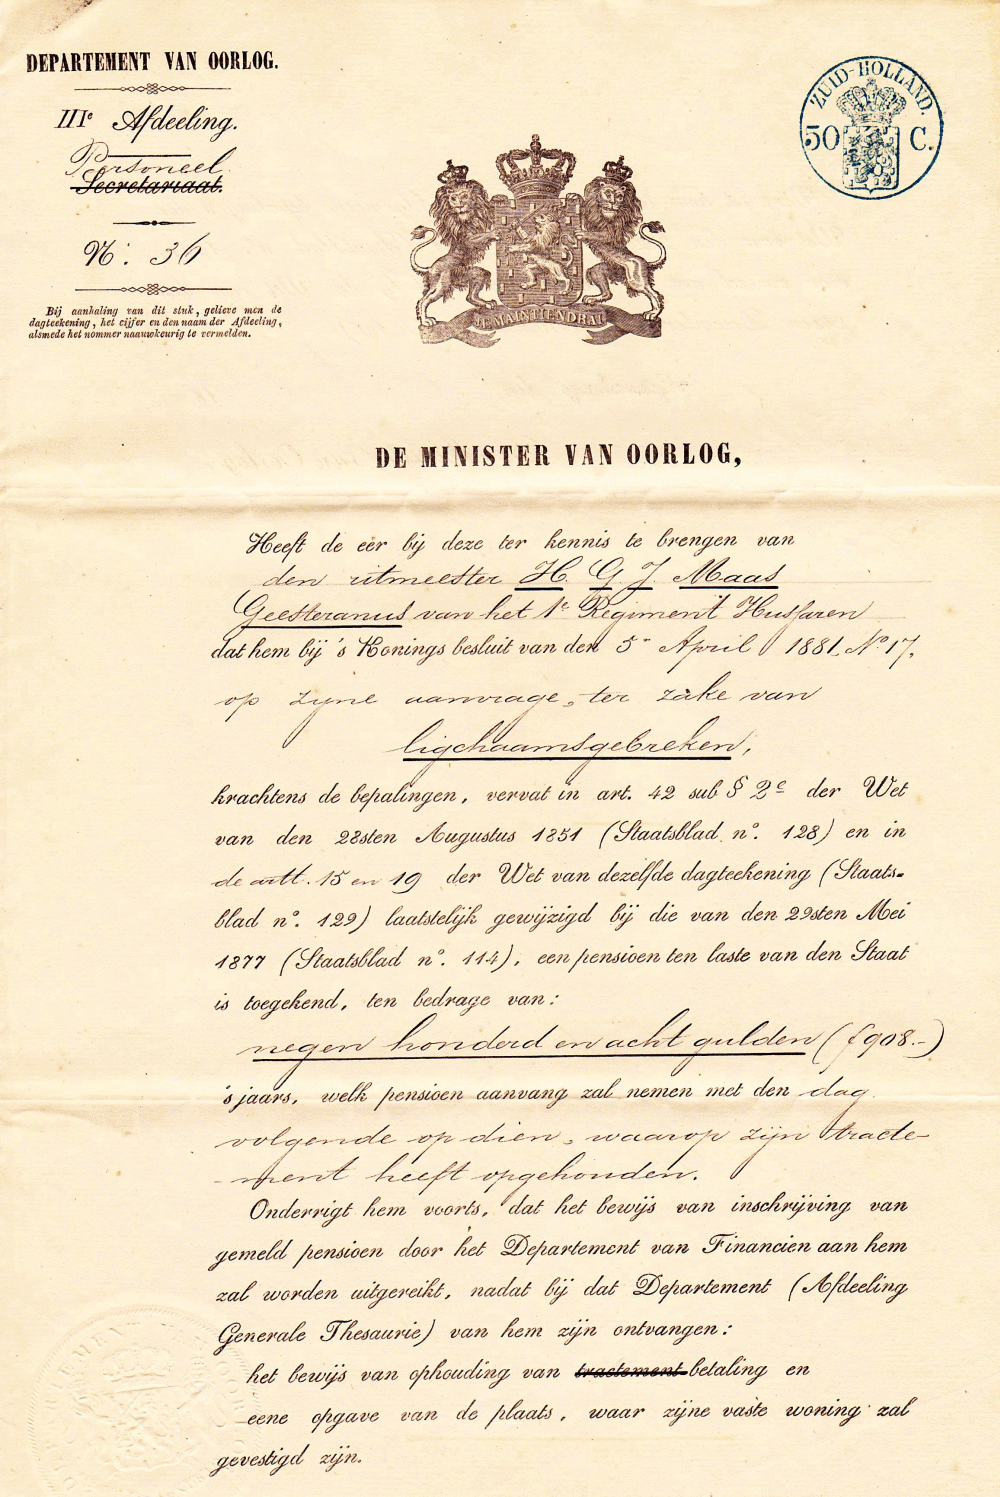 DEPARTEMENT VAN OORLOG.
IIIe Afdeeling.
Personeel
Secretariaat.
No: 36
Bij aanhaling van dit stuk, gelieve men de
dagteekening, het cijfer en den naam der Afdeeling,
alsmede het nommer naauwkeurig te vermelden.
ZUID-HOLLAND.
50 C.
JE MAINTIENDRAI
DE MINISTER VAN OORLOG,
Heeft de eer bij deze ter kennis te brengen van
den ritmeester H. G. J. Maas
Geesteranus van het 1e Regiment Hussaren
dat hem bij 's Konings besluit van den 5n April 1881, No 17,
op zijne aanvrage, ter zake van
ligchaamsgebreken,
krachtens de bepalingen, vervat in art. 42 sub § 2e der Wet
van den 28sten Augustus 1851 (Staatsblad no. 128) en in
de artt. 15 en 19 der Wet van dezelfde dagteekening (Staats-
blad no. 129) laatstelijk gewijzigd bij die van den 29sten Mei
1877 (Staatsblad no. 114), een pensioen ten laste van den Staat
is toegekend, ten bedrage van:
negen honderd en acht gulden (f 908.-)
's jaars, welk pensioen aanvang zal nemen met den dag
volgende op dien, waarop zijn tracte-
-ment heeft opgehouden.
Onderrigt hem voorts, dat het bewijs van inschrijving van
gemeld pensioen door het Departement van Financien aan hem
zal worden uitgereikt, nadat bij dat Departement (Afdeeling
Generale Thesaurie) van hem zijn ontvangen:
het bewijs van ophouding van tractement-betaling en
eene opgave van de plaats, waar zijne vaste woning zal
gevestigd zijn.